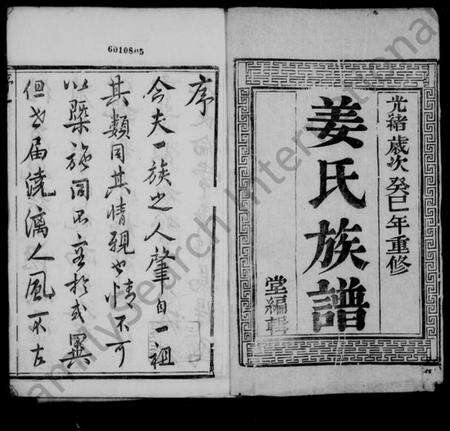 光緒歲次癸巳年重修
姜氏族譜
堂編輯
6010805
序
今夫一族之人肇自一祖
其類同其情親也情不可
以槩施
但世届澆漓人風不古
FamilySearch International